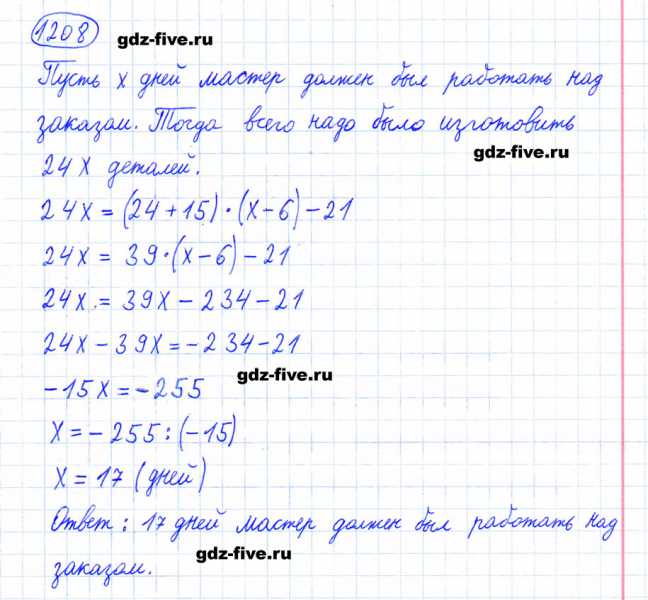 1208 gdz-five.ru
Пусть х дней мастер должен был работать над
заказом. Тогда всего надо было изготовить
gdz-five.ru
24 х деталей.
24х = (24+15)·(х-6)-21
24х = 39·(х-6)-21
24х = 39х - 234-21
24х - 39х = -234-21
gdz-five.ru
-15х = -255
х = -255:(-15)
х = 17 (дней)
Ответ: 17 дней мастер должен был работать над
gdz-five.ru
заказом.